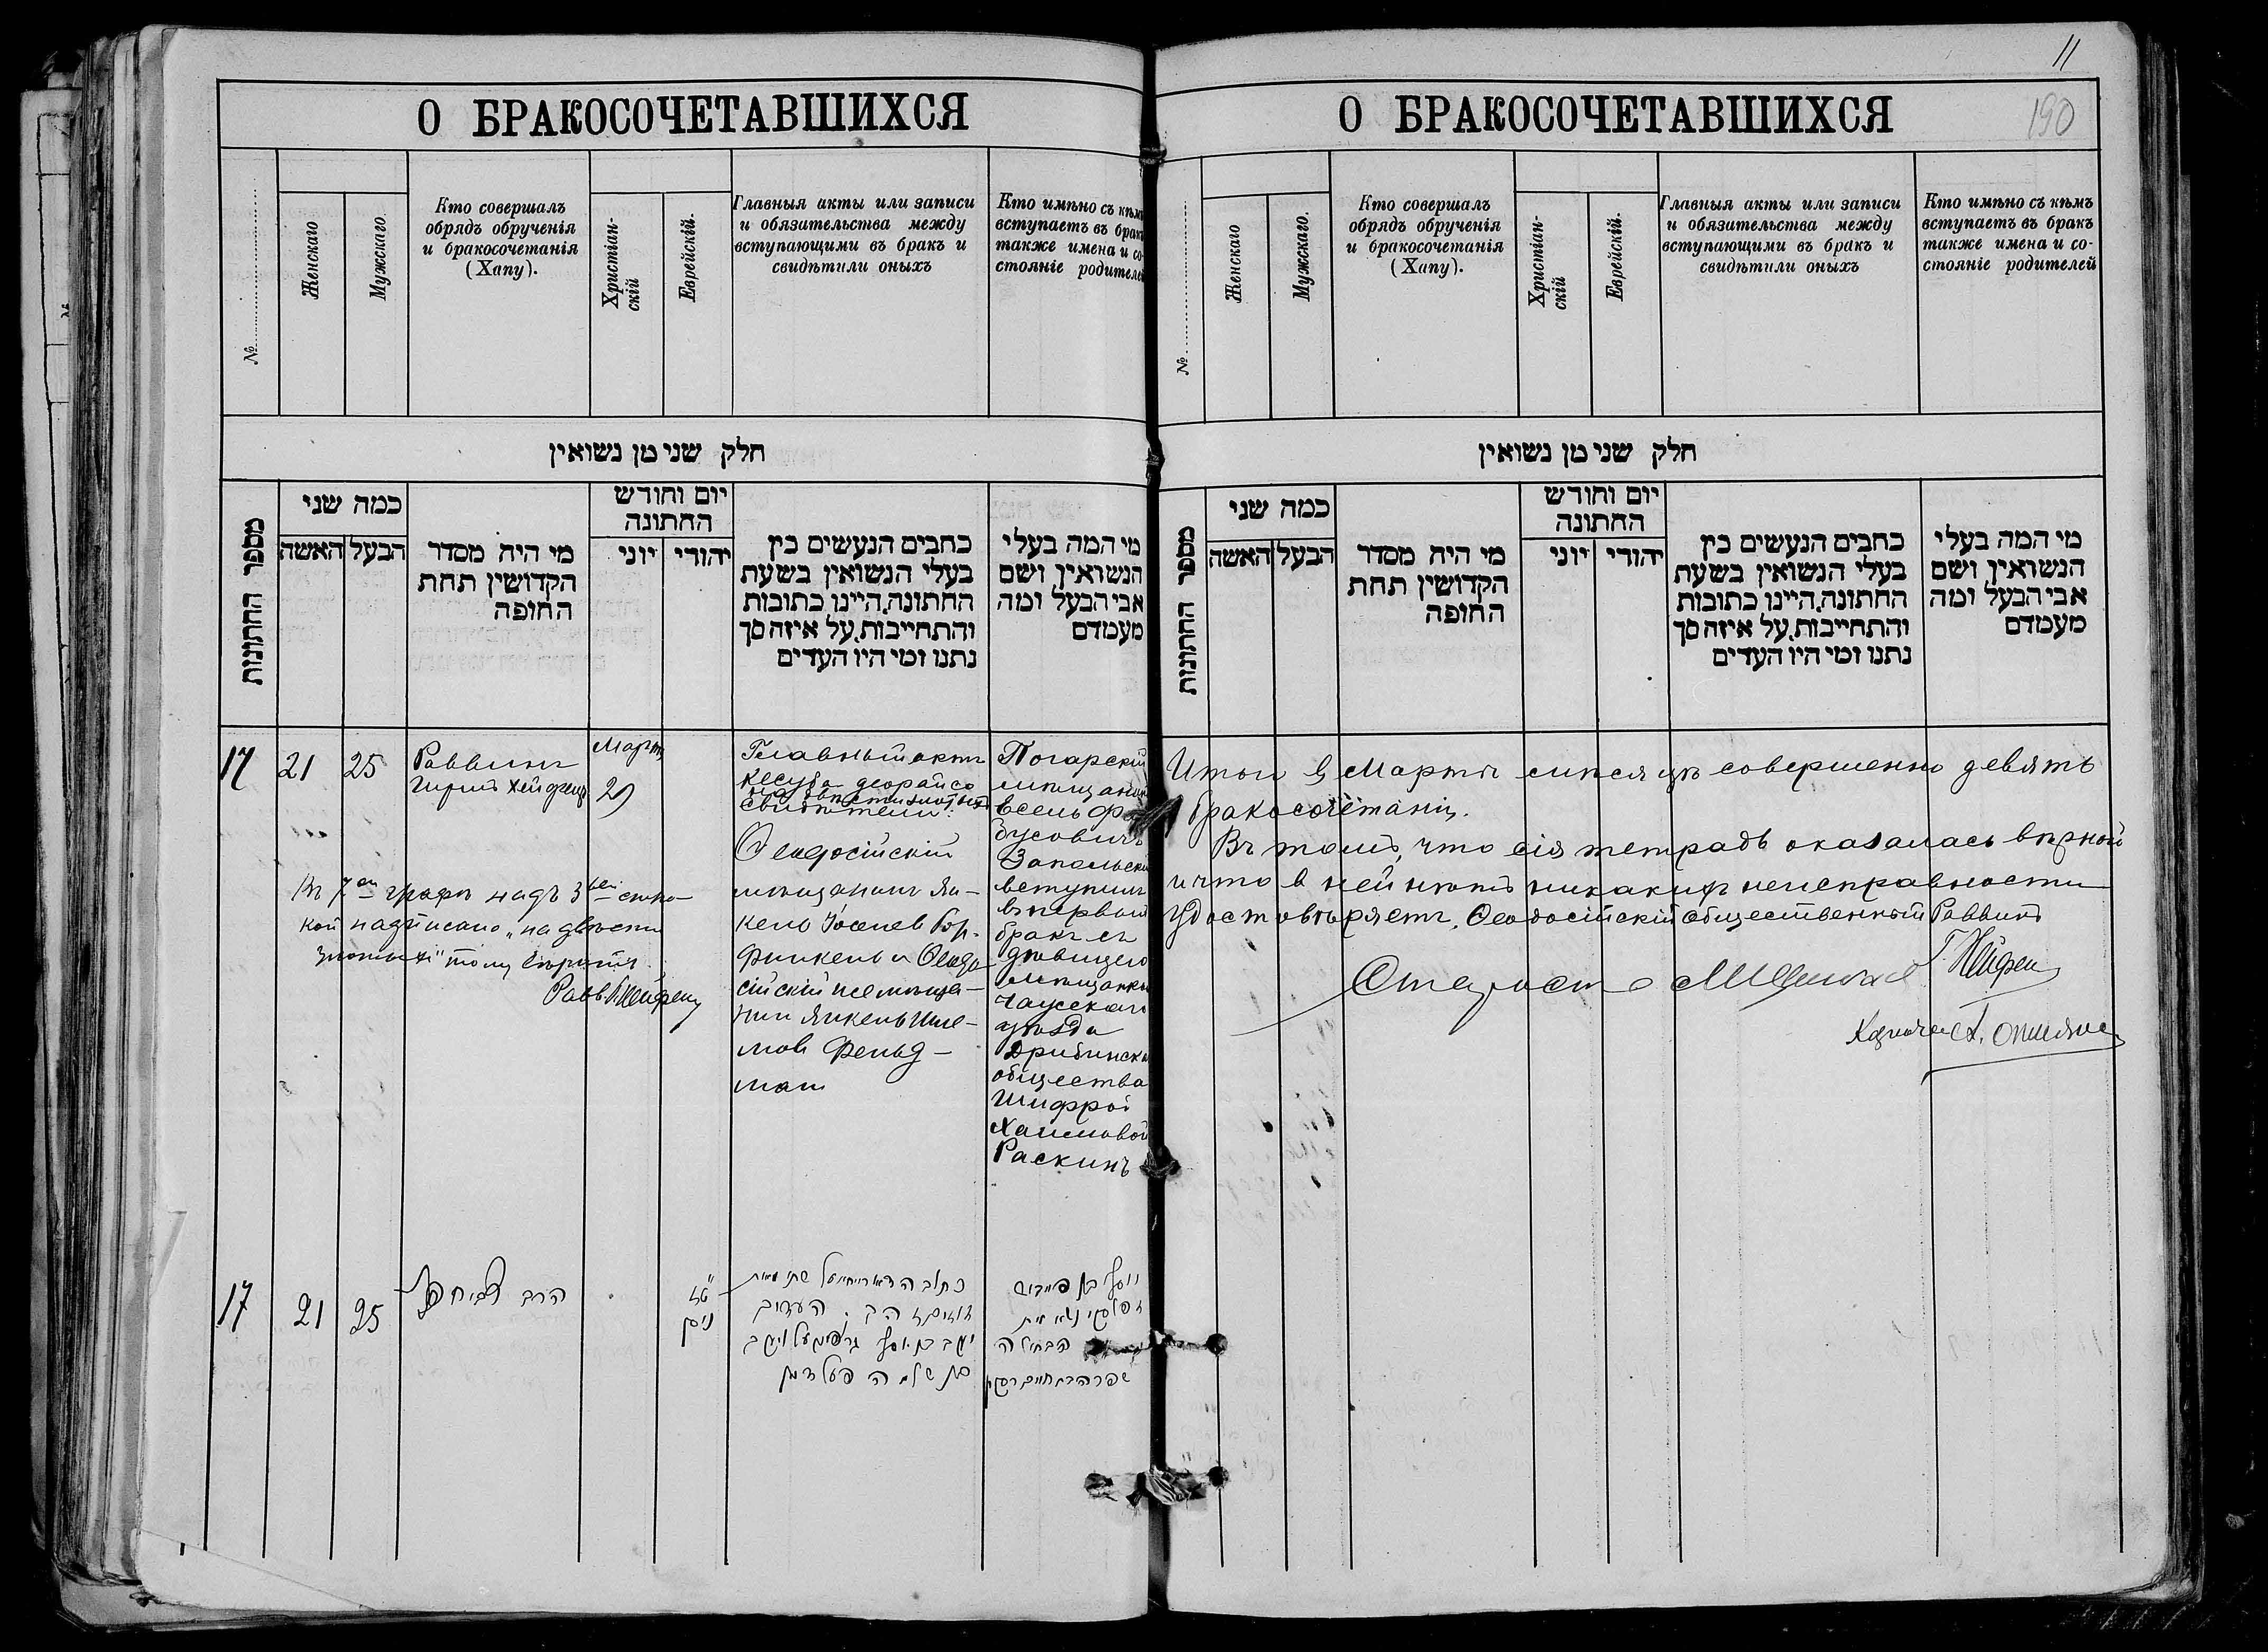 11
190
О БРАКОСОЧЕТАВШИХСЯ
№
Женскаго
Мужскаго
Кто совершалъ
обрядъ обрученія
и бракосочетанія
(Хапу).
Христіан-
скій
Еврейскій.
Главныя акты или записи
и обязательства между
вступающими въ бракъ и
свидѣтили оныхъ
Кто имѣно съ кѣмъ
вступаетъ въ бракъ
также имена и со-
стояніе родителей
חלק שני מן נשואין
מספר החתונות
כמה שני
האשה
הבעל
מי היה מסדר
הקדושין תחת
החופה
יום וחודש
החתונה
יוני
יהודי
כתבים הנעשים בין
בעלי הנשואין בשעת
החתונה, היינו כתובות
והתחייבות, על איזה סך
נתנו ומי היו העדים
מי המה בעלי
הנשואין ושם
אבי הבעל ומה
מעמדם
17
21
25
Раввинъ
Хейфецъ
Мартъ
29
Главный актъ
кесуба деорайсо
на двѣсти злотыхъ
свидѣтели:
Ѳеодосійскій
мѣщанинъ Ян-
кель Іоселев Гор-
финкель и Ѳеодо-
сійскій мѣща-
нин Янкель Шле-
мов Фельд-
ман
Погарскій
мѣщанин
Іосель Фай-
бусовичъ
Запольскій
вступилъ
въ первый
бракъ съ
дѣвицею
мѣщанкой
Чаусскаго
уѣзда
Дрибинска
общества
Шифрой
Хаимовой
Раскинъ
Въ 7ой графѣ надъ 3ьей стро-
кой надписано „на двѣсти
злотыхъ" тому вѣрить
Равв. Хейфецъ
17
21
25
הרב
ניסן
שתי מאות
העדים
יעקב בן יוסף
בן שלמה פעלדמן
יוסף בן פייביש
הבתולה
שפרה בת חיים רסקין
О БРАКОСОЧЕТАВШИХСЯ
№
Женскаго
Мужскаго.
Кто совершалъ
обрядъ обрученія
и бракосочетанія
(Хапу).
Христіан-
скій
Еврейскій.
Главныя акты или записи
и обязательства между
вступающими въ бракъ и
свидѣтили оныхъ
Кто имѣно съ кѣмъ
вступаетъ въ бракъ
также имена и со-
стояніе родителей
חלק שני מן נשואין
מספר החתונות
כמה שני
האשה
הבעל
מי היה מסדר
הקדושין תחת
החופה
יום וחודש
החתונה
יוני
יהודי
כתבים הנעשים בין
בעלי הנשואין בשעת
החתונה, היינו כתובות
והתחייבות, על איזה סך
נתנו ומי היו העדים
מי המה בעלי
הנשואין ושם
אבי הבעל ומה
מעמדם
Итого в Мартѣ мѣсяцѣ совершено девять
бракосочетаній.
Въ томъ, что сія тетрадь оказалась вѣрной
и что в ней нѣтъ никаких неисправностей
удостовѣряетъ Ѳеодосійскій Общественный Раввинъ
Г. Хейфецъ
Староста
Казначей